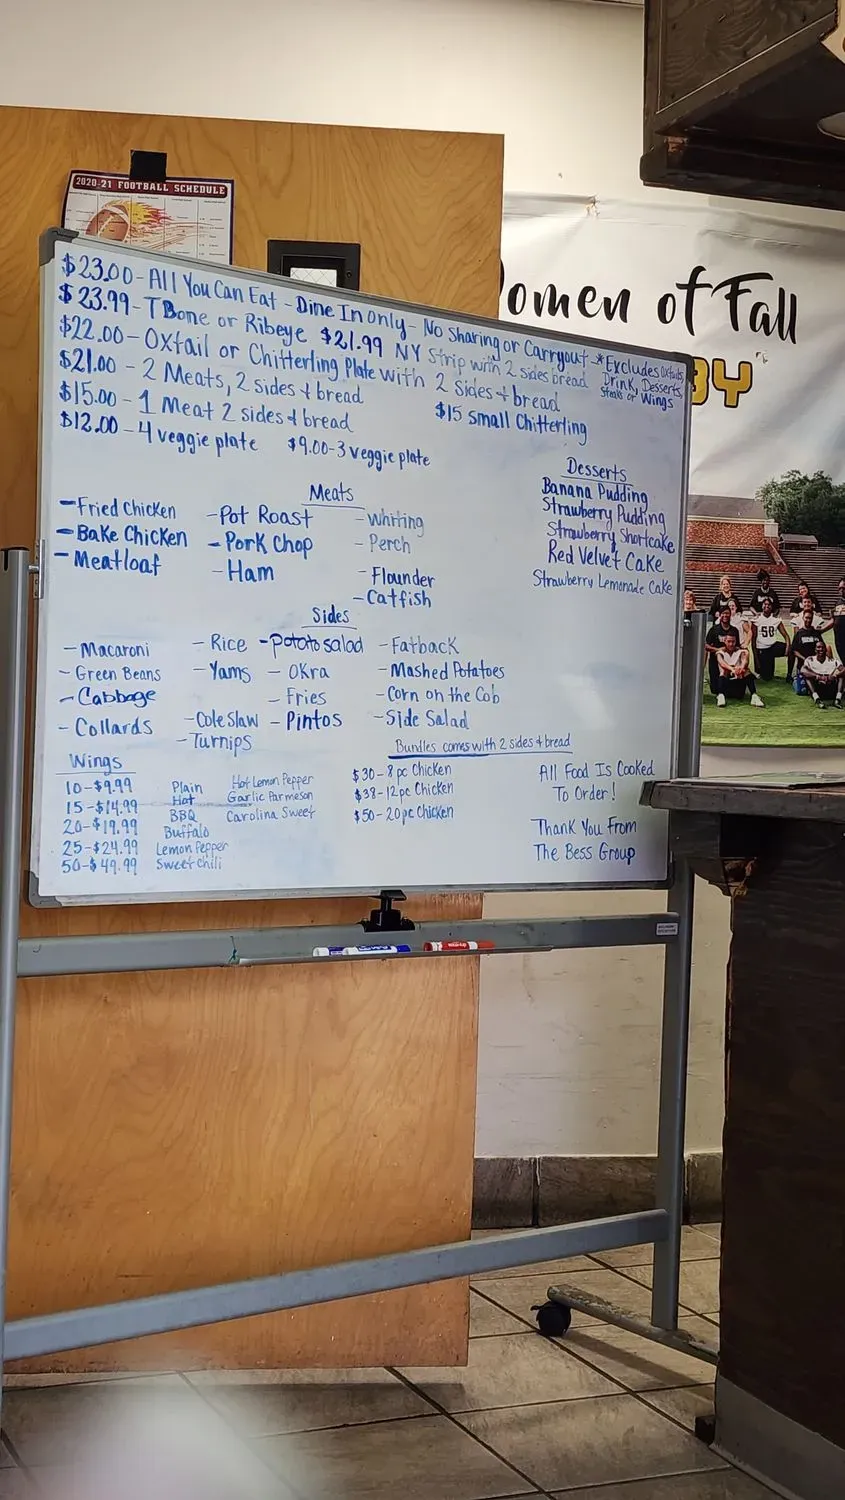 2020-21 FOOTBALL SCHEDULE
omen of Fall
BY
$23.00 - All You Can Eat - Dine In Only - No Sharing or Carryout - *Excludes Oxtails,
Drink, Desserts,
Steaks or Wings
$23.99 - T Bone or Ribeye $21.99 NY Strip with 2 sides bread
$22.00 - Oxtail or Chitterling Plate with 2 Sides & bread
$21.00 - 2 Meats, 2 sides & bread $15 Small Chitterling
$15.00 - 1 Meat 2 sides & bread
$12.00 - 4 veggie plate $9.00 - 3 veggie plate
Meats
- Fried Chicken - Pot Roast - Whiting
- Bake Chicken - Pork Chop - Perch
- Meatloaf - Ham - Flounder
- Catfish
Desserts
Banana Pudding
Strawberry Pudding
Strawberry Shortcake
Red Velvet Cake
Strawberry Lemonade Cake
Sides
- Macaroni - Rice - Potato salad - Fatback
- Green Beans - Yams - Okra - Mashed Potatoes
- Cabbage - Fries - Corn on the Cob
- Collards - Cole Slaw - Pintos - Side Salad
- Turnips
Wings
10 - $9.99 Plain Hot Lemon Pepper
15 - $14.99 Hot Garlic Parmeson
20 - $19.99 BBQ Carolina Sweet
25 - $24.99 Buffalo
50 - $49.99 Lemon Pepper
Sweet Chili
Bundles comes with 2 sides & bread
$30 - 8 pc Chicken
$38 - 12pc Chicken
$50 - 20pc Chicken
All Food Is Cooked
To Order!
Thank You From
The Bess Group
50